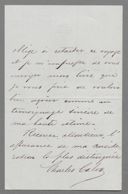 obligé à retarder ce voyage
et je m'empresse de vous
envoyer mon livre que
je vous prie de vouloir
bien agréer comme un
témoignage sincère de
ma haute estime.
Recevez, Monsieur, l'
assurance de ma considé-
ration la plus distinguée
Charles